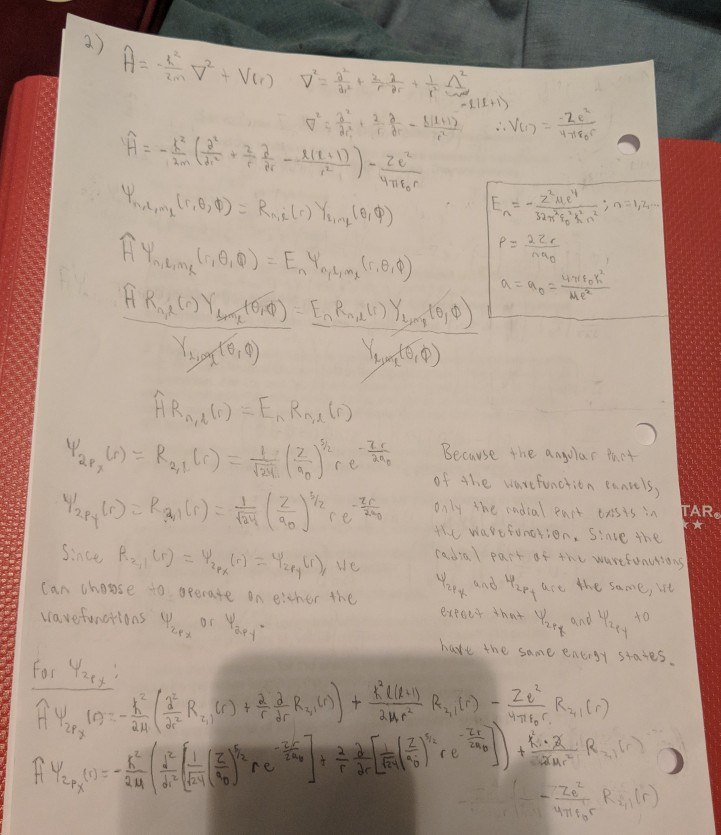 2)
Ĥ = -ħ²/2m ∇² + V(r)   ∇² = ∂²/∂r² + 2/r ∂/∂r + 1/r² Λ²
-l(l+1)
∇² = ∂²/∂r² + 2/r ∂/∂r - l(l+1)/r²   ∴ V(r) = -Ze²/4πε₀r
Ĥ = -ħ²/2m (∂²/∂r² + 2/r ∂/∂r - l(l+1)/r²) - Ze²/4πε₀r
Ψn,l,ml(r,θ,φ) = Rn,l(r) Yl,ml(θ,φ)
Ĥ Ψn,l,ml(r,θ,φ) = En Ψn,l,ml(r,θ,φ)
Ĥ Rn,l(r) Yl,ml(θ,φ) = En Rn,l(r) Yl,ml(θ,φ)
Yl,ml(θ,φ)   Yl,ml(θ,φ)
Ĥ Rn,l(r) = En Rn,l(r)
En = - Z²μe⁴/32π²ε₀²ħ²n² ; n=1,2,...
ρ = 2Zr/na₀
a = a₀ = 4πε₀ħ²/μe²
Ψ2px(r) = R2,1(r) = 1/√24 (Z/a₀)^5/2 r e^-Zr/2a₀
Ψ2py(r) = R2,1(r) = 1/√24 (Z/a₀)^5/2 r e^-Zr/2a₀
Since R2,1(r) = Ψ2px(r) = Ψ2py(r), we
can choose to operate on either the
wavefunctions Ψ2px or Ψ2py.
Because the angular part
of the wavefunction cancels,
only the radial part exists in
the wavefunction. Since the
radial part of the wavefunctions
Ψ2px and Ψ2py are the same, we
expect that Ψ2px and Ψ2py to
have the same energy states.
For Ψ2px:
Ĥ Ψ2px(r) = -ħ²/2μ (∂²/∂r² R2,1(r) + 2/r ∂/∂r R2,1(r)) + ħ²l(l+1)/2μr² R2,1(r) - Ze²/4πε₀r R2,1(r)
Ĥ Ψ2px(r) = -ħ²/2μ (∂²/∂r² [1/√24 (Z/a₀)^5/2 r e^-Zr/2a₀] + 2/r ∂/∂r [1/√24 (Z/a₀)^5/2 r e^-Zr/2a₀]) + ħ²·2/2μr² R2,1(r)
- Ze²/4πε₀r R2,1(r)
TAR®